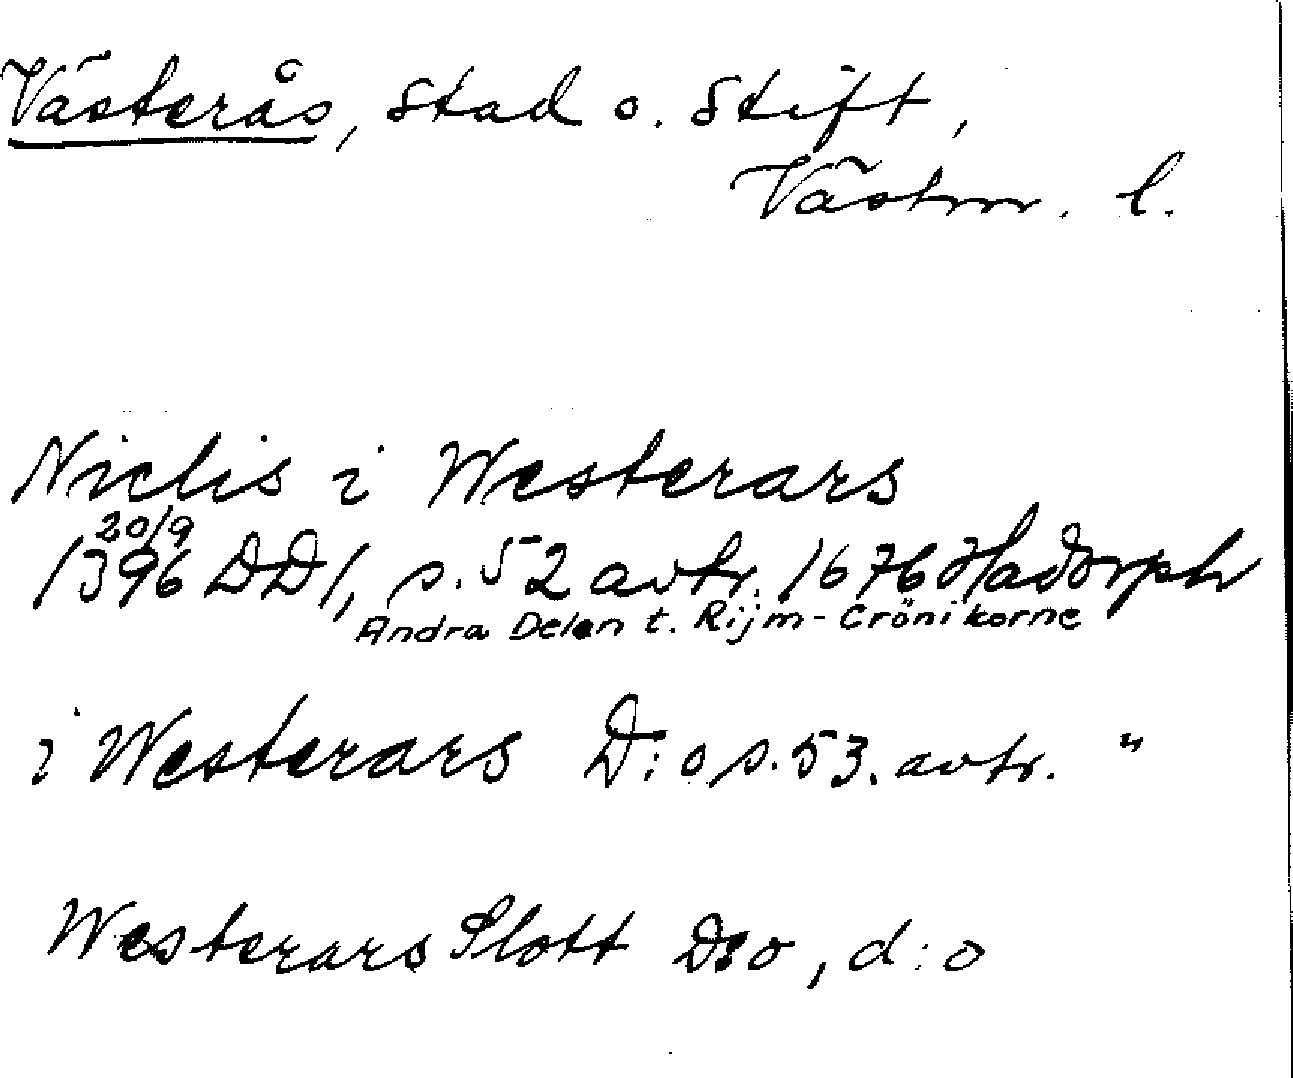 Västerås, stad o. stift,
Västm. l.
Niclis i Westerars
20/9
1396 DD1, s. 52 avtr. 1676 Hadorph
Andra Delen t. Rijm-Crönikorne
i Westerars D:o s. 53. avtr. "
Westerars Slott D:o, d:o